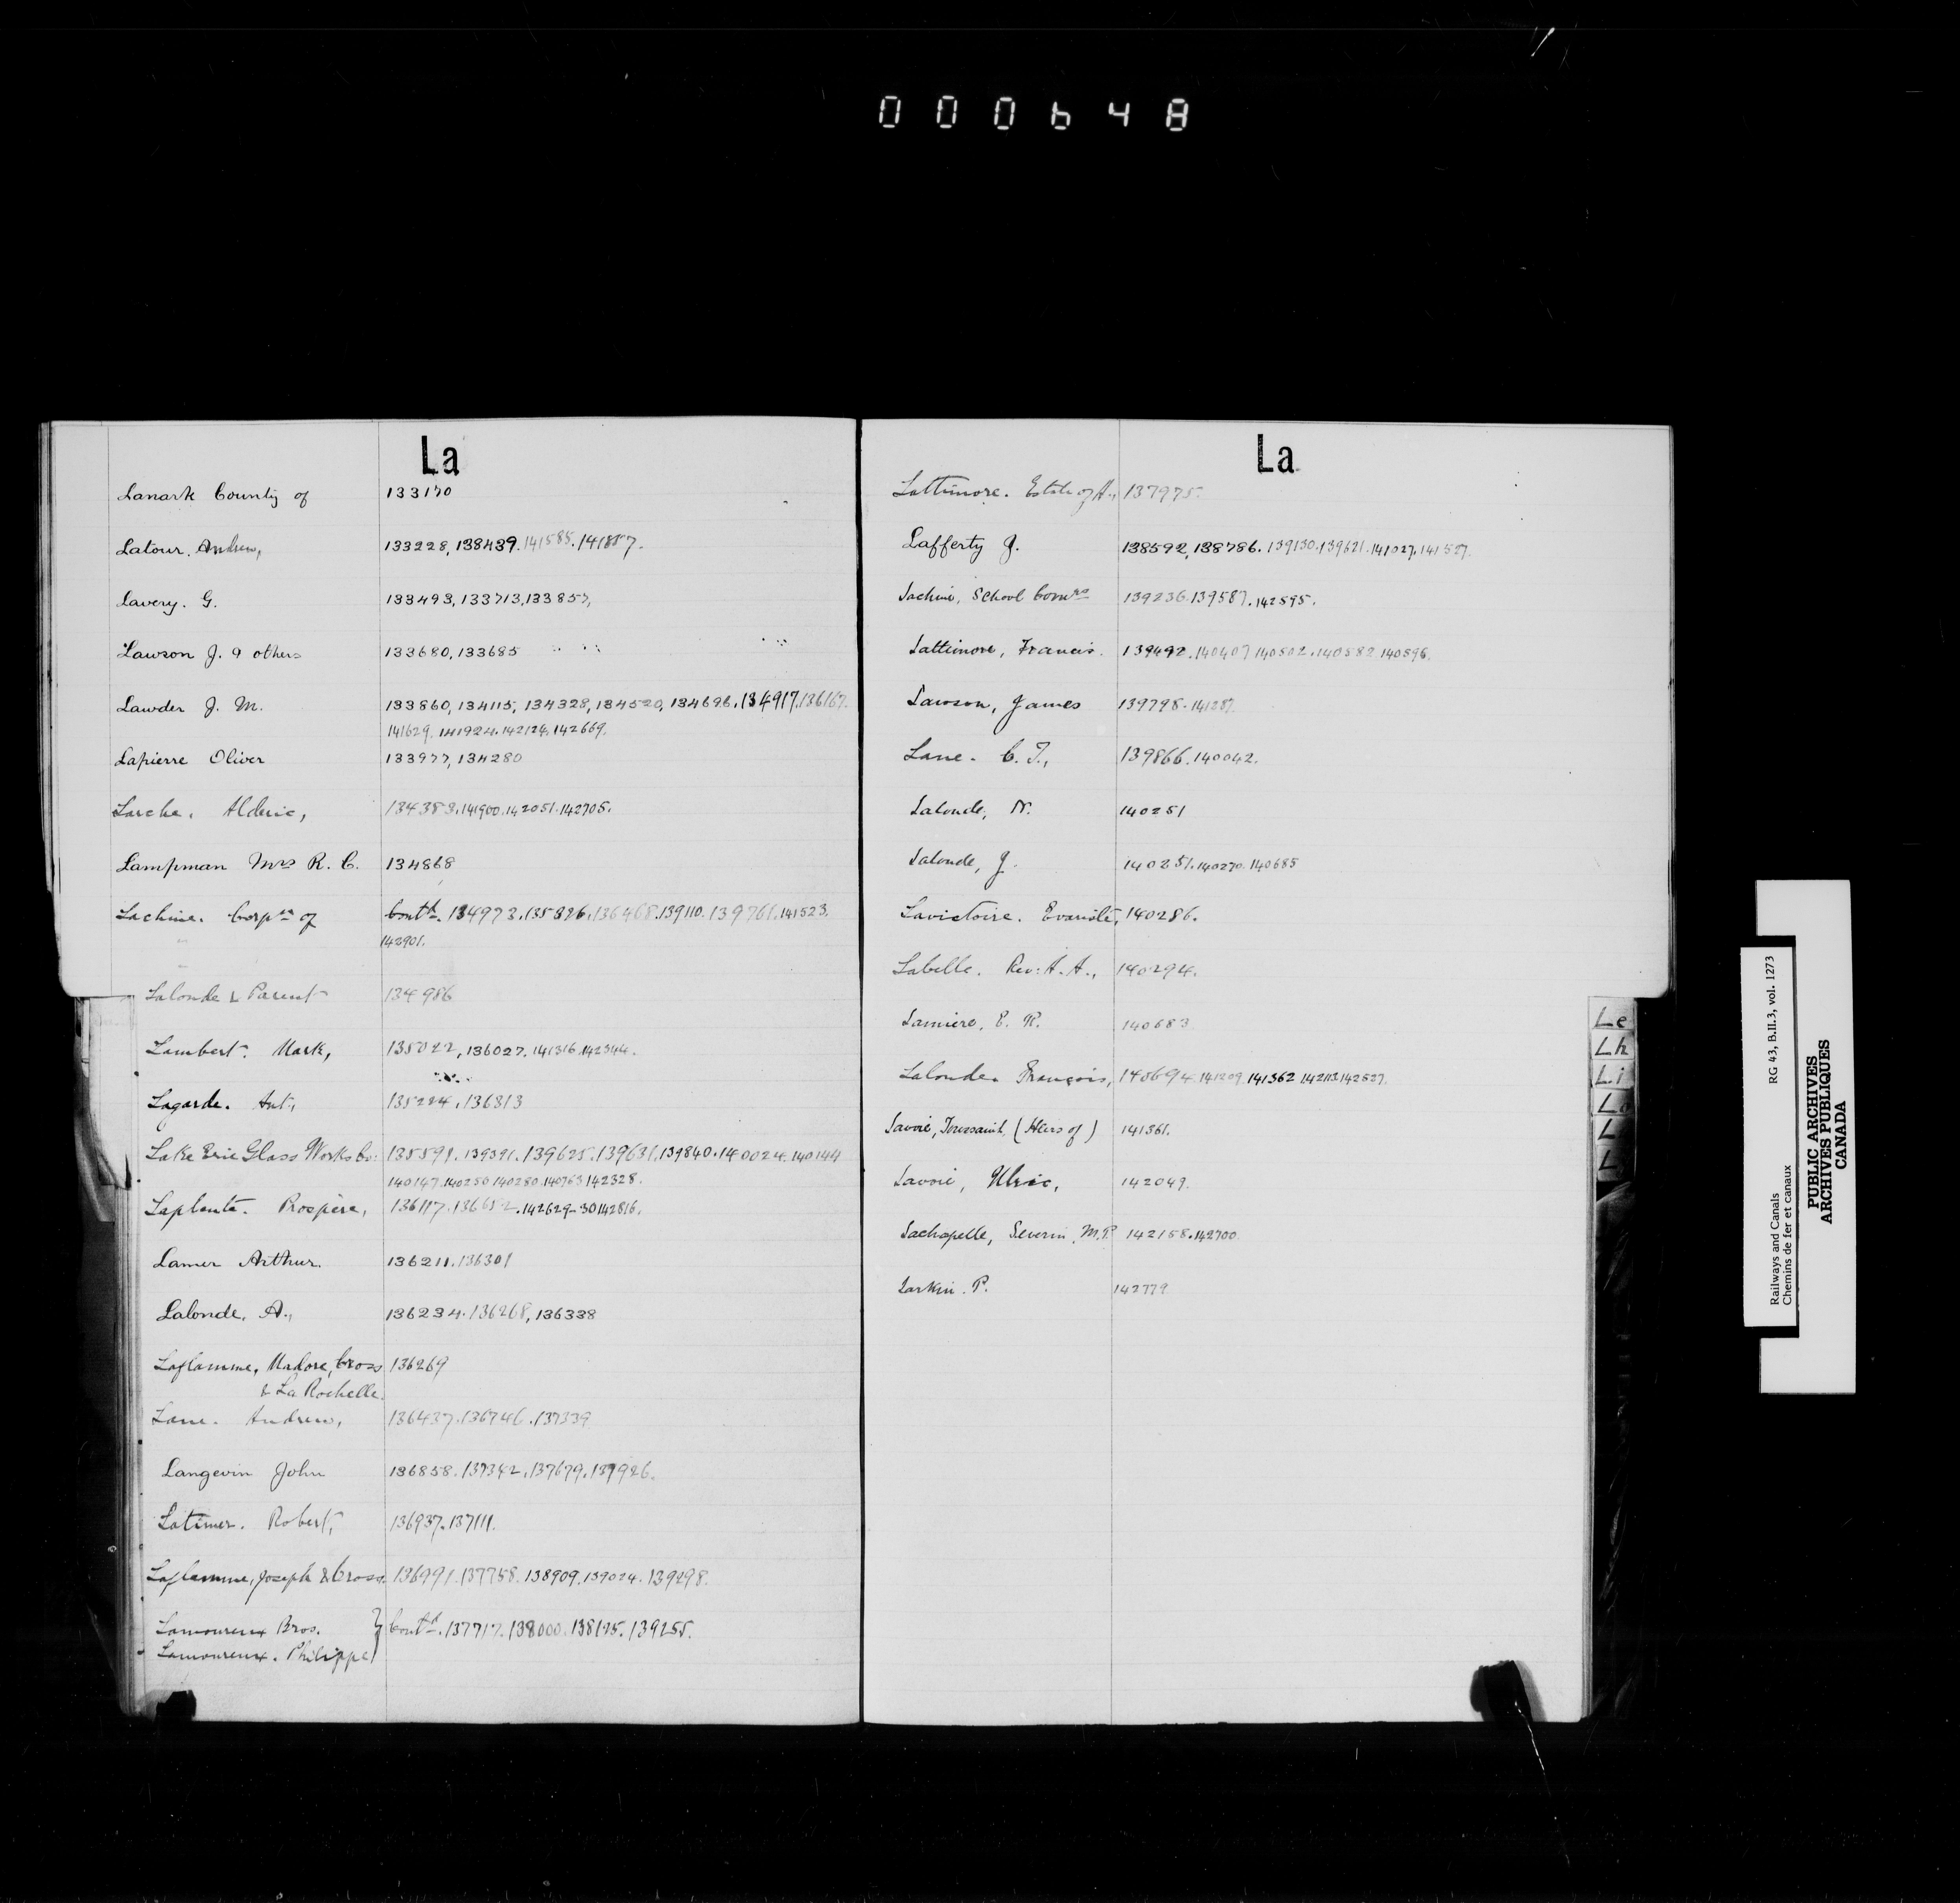 000648
La
Lanark County of 133170
Latour. Andrew, 133228, 138439. 141585. 141887.
Lavery. G. 133493, 133713, 133857,
Lawson J. & others 133680, 133685
Lawder J. M. 133860, 134115, 134328, 134520, 134696. 134917. 136167.
141629. 141924. 142124. 142669.
Lapierre Oliver 133977, 134280
Larche. Alderic, 134383. 141900. 142051. 142705.
Lampman Mrs R. C. 134868
Lachine. Corpn of Contd. 134973. 135326. 136468. 139110. 139761. 141523.
142901.
Lalonde & Parent 134986
Lambert. Mark, 135022, 136027. 141316. 142344.
Lagarde. Ant., 135224. 136313
Lake Erie Glass Works Co: 135591. 139391. 139625. 139631. 139840. 140024. 140144
140147. 140250 140280. 140763 142328.
Laplante. Prospère, 136117. 136652. 142629-30 142816.
Lamer Arthur. 136211. 136301
Lalonde, A., 136234. 136268, 136338
Laflamme, Madore, Cross 136269
& La Rochelle.
Lane. Andrew, 136437. 136746. 137339
Langevin John 136858. 137342. 137679. 139926.
Latimer. Robert, 136937. 137111.
Laflamme, Joseph & Cross. 136991. 137758. 138909. 139024. 139298.
Lamoureux Bros. } Contd. 137717. 138000. 138125. 139255.
Lamoureux. Philippe
La
Lattimore. Estate of A., 137975.
Lafferty J. 138592, 138786. 139130. 139621. 141027. 141527.
Lachine, School Comrs 139236. 139587. 142595.
Lattimore, Francis. 139492. 140407 140502. 140582 140596.
Lawson, James 139798. 141287.
Lane. C. T., 139866. 140042.
Lalonde, N. 140251
Lalonde, J. 140251. 140270. 140685
Lavictoire. Evariste, 140286.
Labelle. Rev: A. A., 140294.
Lamiere, E. R. 140683
Lalonde. François, 140694. 141209. 141362 142113. 142527.
Lavoie, Toussaint, (Heirs of) 141361.
Lavoie, Ulric, 142049.
Lachapelle, Severin M.P. 142158. 142700
Larkin. P. 142779
Le
Lh
Li
Lo
L
L
Railways and Canals RG 43, B.II.3, vol. 1273
Chemins de fer et canaux
PUBLIC ARCHIVES
ARCHIVES PUBLIQUES
CANADA